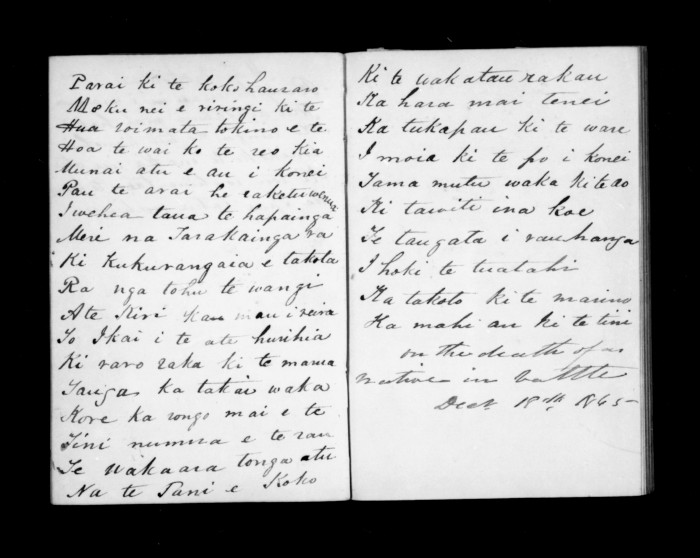 Parai ki te koko hauraro
Moku nei e riringi ki te
Hua roimata tokino e te
Hoa te wai ko te reo kia
Munai atu e au i konei
Pau te arai he raketu wenua
I wehea taua te hapainga
Meri na Tarakainga ra
Ki Kukurangaia e takoto
Ra nga tohu te wangi
Ate Kiri kau mau i reira
To Ikai i te ate hurihia
Ki raro raka ki te mama
Taugas ka takai waka
Kore ka rongo mai e te
Tini numia e te rau
Te wakaara tonga atu
Na te Pani e Koko
Ki te wakatau rakau
Ka hara mai tenei
Ka tukapau ki te ware
I moia ki te po i konei
Tama mutu waka ki te ao
Ki tawiti ina koe
Te taugata i rau hanga
I hoki te tuatahi
Ka takoto ki te marino
Ka mahi au ki te tini
on the death of
natives in battle
Decr 18th 1865